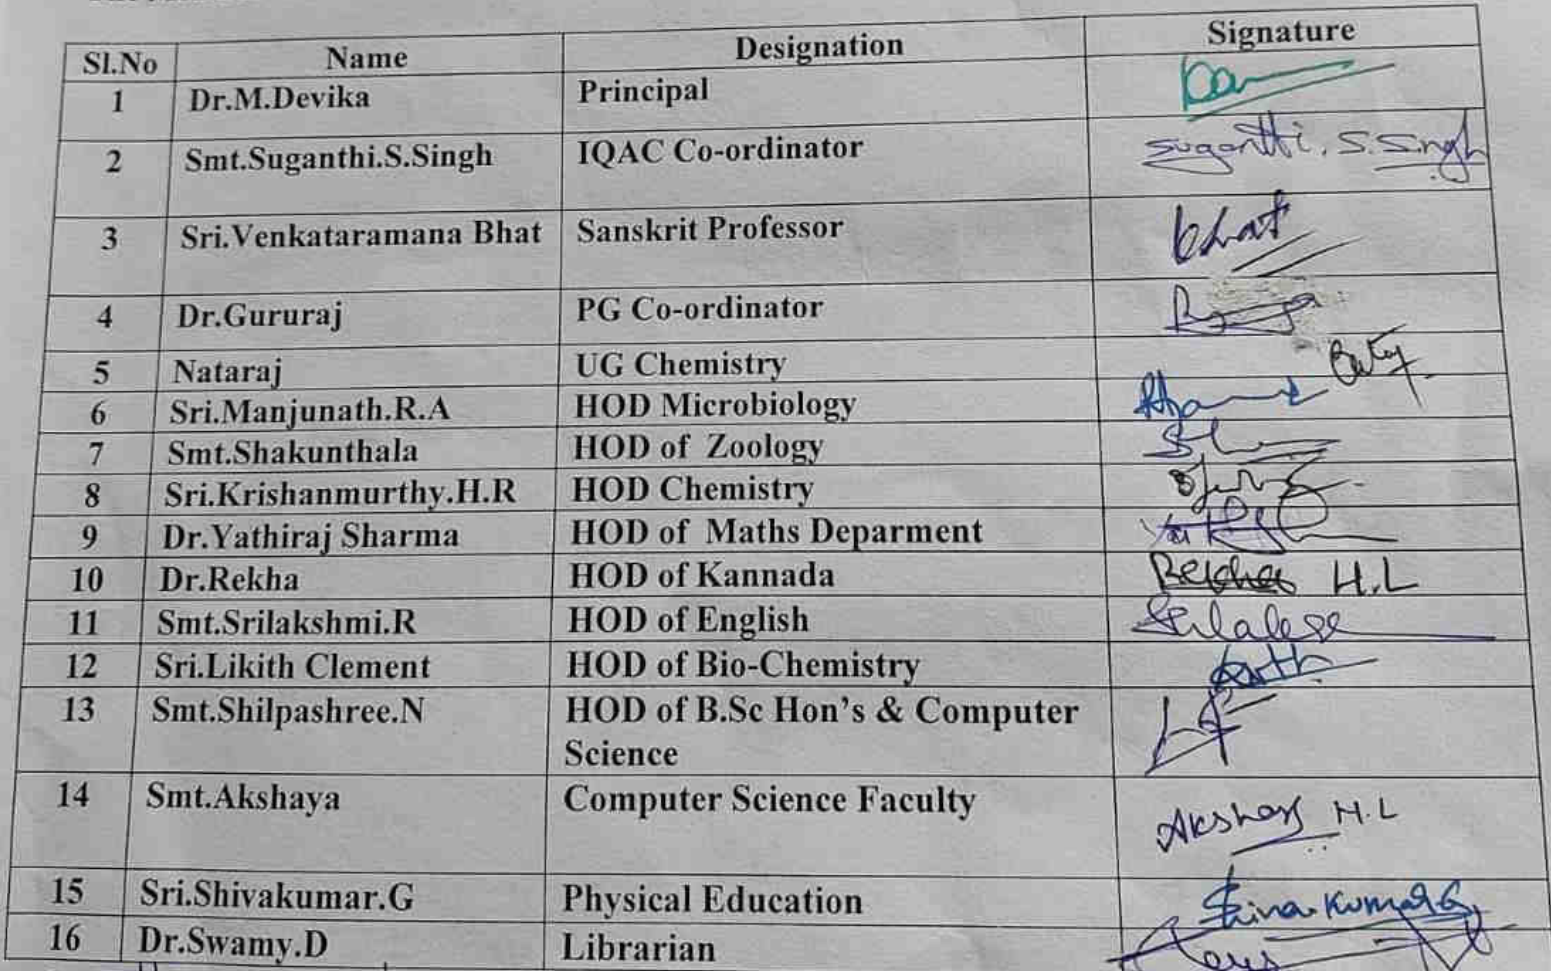 Sl.No Name Designation Signature
1 Dr.M.Devika Principal
2 Smt.Suganthi.S.Singh IQAC Co-ordinator Suganthi.S.Singh
3 Sri.Venkataramana Bhat Sanskrit Professor Bhat
4 Dr.Gururaj PG Co-ordinator
5 Nataraj UG Chemistry
6 Sri.Manjunath.R.A HOD Microbiology
7 Smt.Shakunthala HOD of Zoology
8 Sri.Krishanmurthy.H.R HOD Chemistry
9 Dr.Yathiraj Sharma HOD of Maths Deparment
10 Dr.Rekha HOD of Kannada Rekha H.L
11 Smt.Srilakshmi.R HOD of English
12 Sri.Likith Clement HOD of Bio-Chemistry
13 Smt.Shilpashree.N HOD of B.Sc Hon's & Computer
Science
14 Smt.Akshaya Computer Science Faculty
15 Sri.Shivakumar.G Physical Education Shivakumar G
16 Dr.Swamy.D Librarian